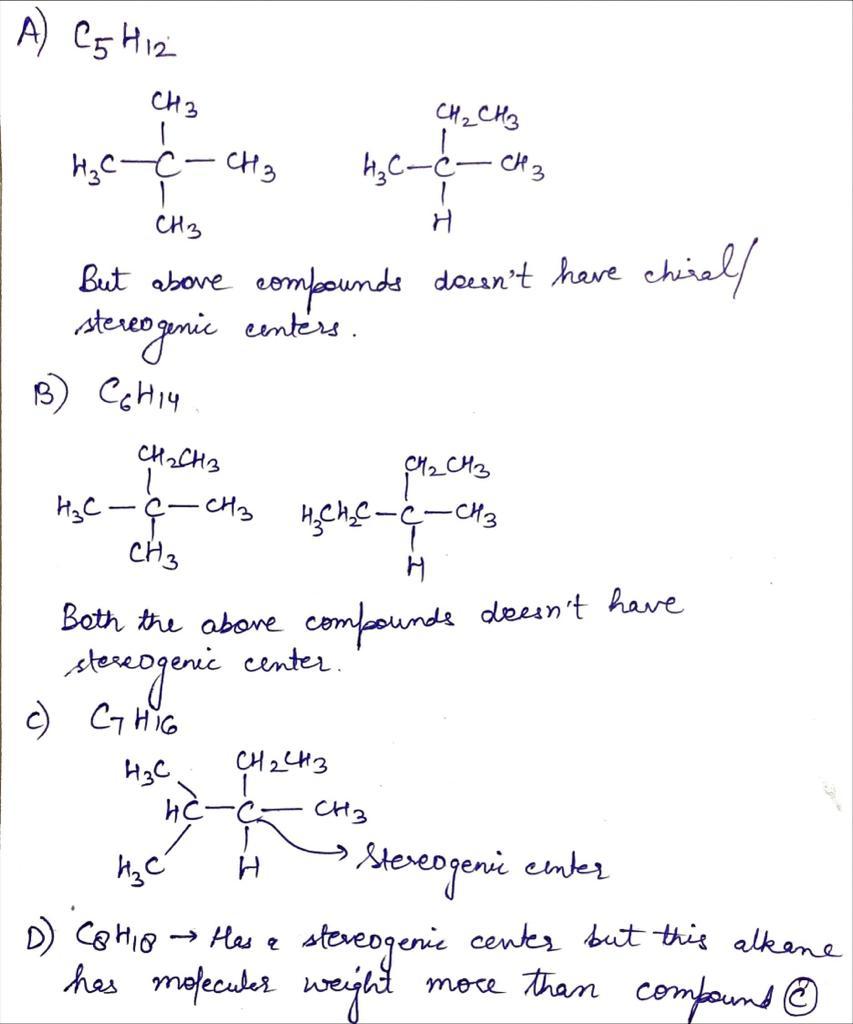 A) C5H12
CH3
H3C—C—CH3
CH3
CH2CH3
H3C—C—CH3
H
But above compounds doesn't have chiral/
stereogenic centers.
B) C6H14
CH2CH3
H3C—C—CH3
CH3
CH2CH3
H3CH2C—C—CH3
H
Both the above compounds doesn't have
stereogenic center.
C) C7H16
H3C CH2CH3
HC—C—CH3
H3C H → Stereogenic center
D) C8H18 → Has a stereogenic center but this alkane
has molecular weight more than compound C